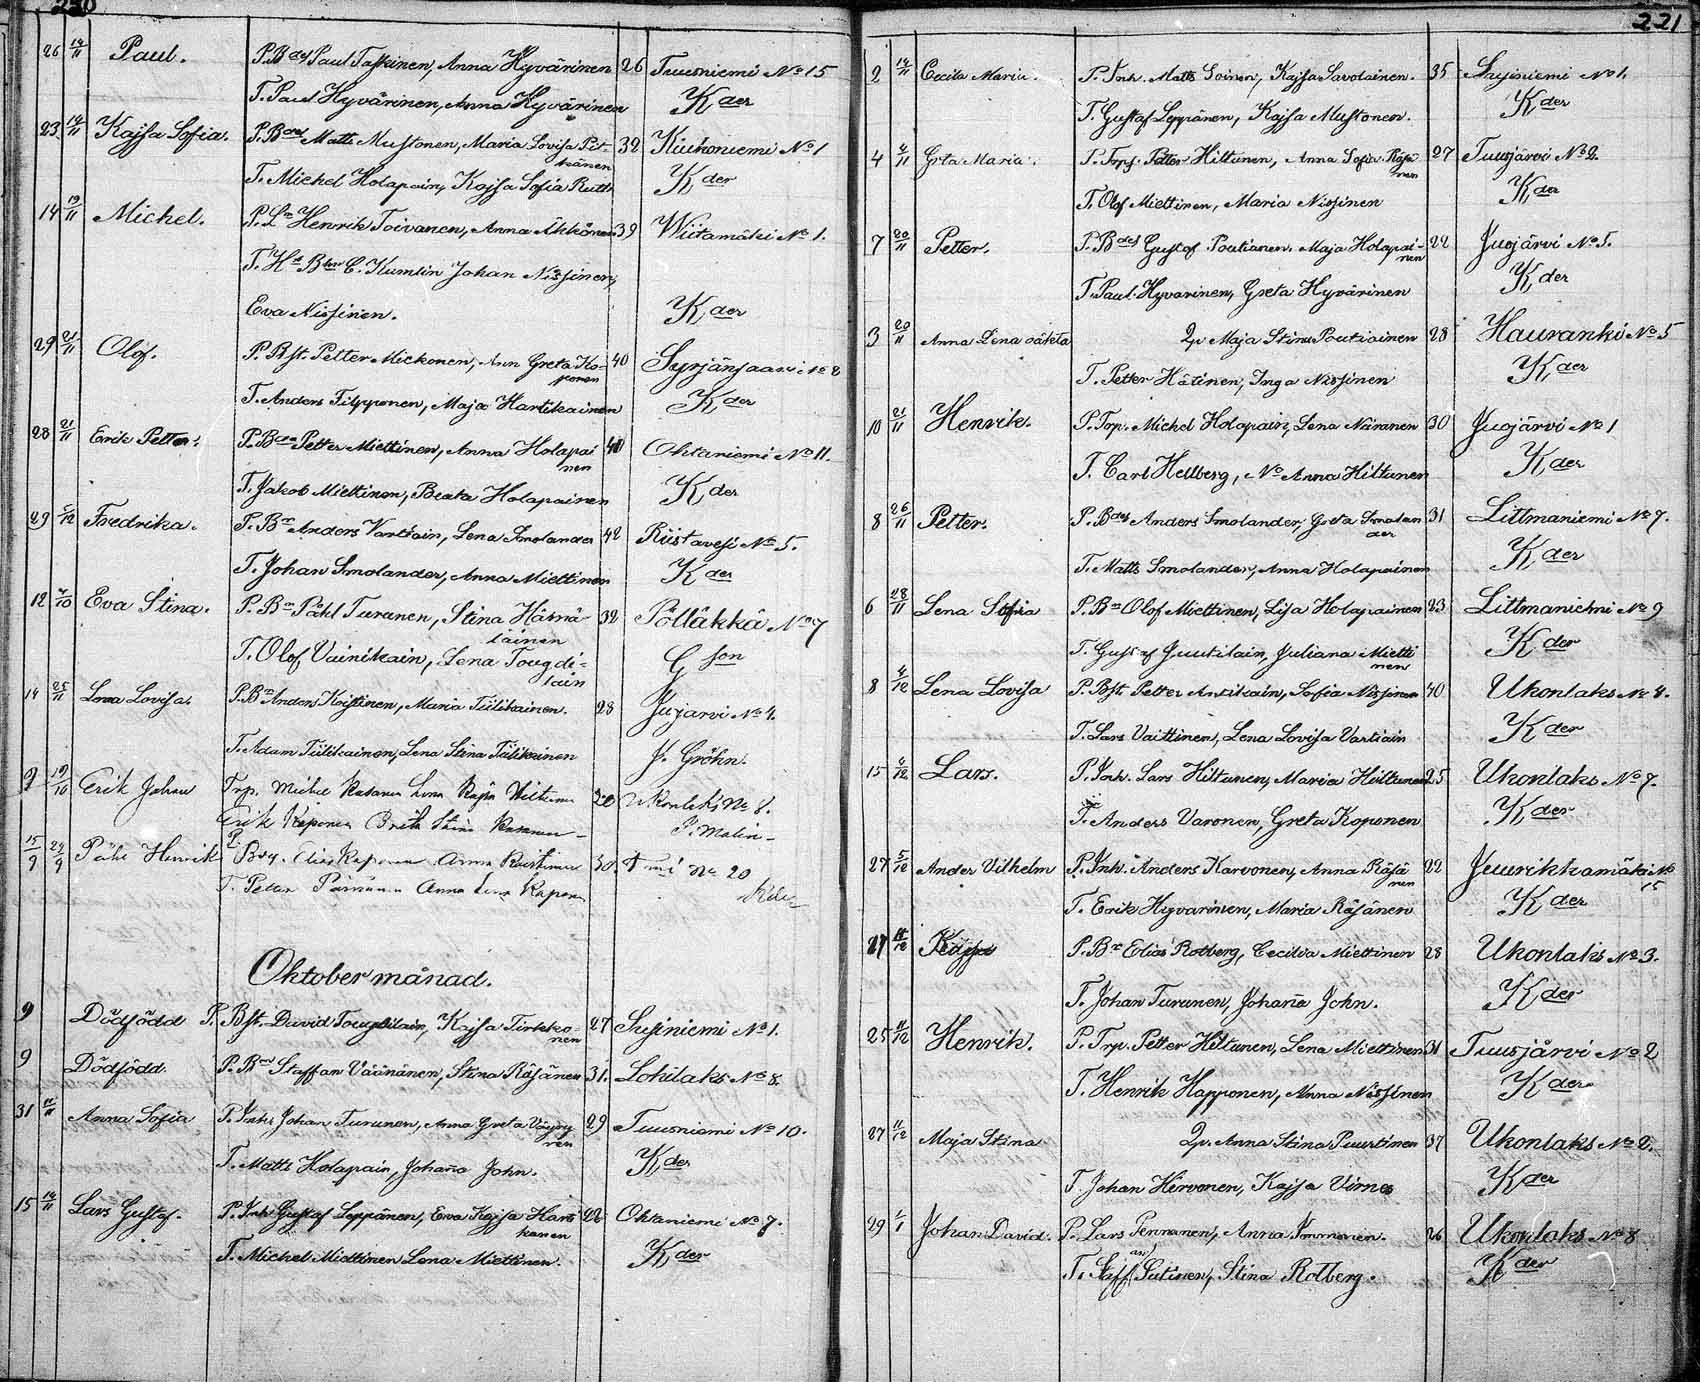 220
26 14/11 Paul. P. Bdes Paul Taskinen, Anna Hyvärinen 26 Tuusniemi No 15
T. Paul Hyvärinen, Anna Hyvärinen Kder
23 14/11 Kajsa Sofia. P. Bdes Matts Mustonen, Maria Lovisa Pit- 32 Kiukoniemi No 1
känen
T. Michel Holapain, Kajsa Sofia Ruth Kder
14 19/11 Michel. P. Ln Henrik Toivanen, Anna Ikkönen 39 Wiitamäki No 1.
T. Hd Bdn C. Kumlin Johan Nissinen,
Eva Nissinen. Kder
29 21/11 Olof. P. Bst. Petter Mickonen, Ann Greta Ko- 40 Syrjänsaari No 8
ponen
T. Anders Filpponen, Maja Hartikainen Kder
28 21/11 Erik Petter. P. Bdn Petter Miettinen, Anna Holapai 40 Ohtaniemi No 11.
nen
T. Jakob Miettinen, Beata Holapainen Kder
29 5/12 Fredrika. P. Bn Anders Vartiain, Lena Smolander 42 Riistavesi No 5.
T. Johan Smolander, Anna Miettinen Kder
12 4/10 Eva Stina. P. Bn Påhl Turunen, Stina Hämä- 32 Pölläkkä No 7
läinen
T. Olof Vainikain, Lena Tougdi- Gson
lain
14 25/11 Lena Lovisa. P. Bn Anders Koistinen, Maria Tiilikainen. 28 Jujarvi No 4.
T. Adam Tiilikainen, Lena Stina Tiilikainen J. Gröhn.
9 19/10 Erik Johan Trp. Michel Rasanen Lena Kajsa 20 Ukonlaks No 8.
Erik Koponen Brita Stina J. Malin
15/9 24/9 Påhl Henrik P. Elias Kaponen Anna 30 No 20
T. Petter Anna Lena Kaponen Kder
Oktober månad.
9 Dödfödd P. Bst. David Tougdilain, Kajsa Tirkko- 27 Susiniemi No 1.
nen
9 Dödfödd. P. Bn Staffan Väänänen, Stina Räsänen 31. Lohilaks No 8.
31 11/11 Anna Sofia P. Inh. Johan Turunen, Anna Greta 29 Tuusniemi No 10.
nen
T. Matts Holapain, Johana John. Kder
15 14/11 Lars Gustaf. P. Inh. Gustaf Leppänen, Eva Kajsa Harti 22 Ohtaniemi No 7.
kanen
T. Michel Miettinen Lena Miettinen. Kder
221
2 14/11 Cecilia Maria. P. Inh. Matts Soinen, Kajsa Savolainen. 35 Susiniemi No 1.
T. Gustaf Leppänen, Kajsa Mustonen. Kder
4 4/11 Greta Maria. P. Trp. Petter Hiltunen, Anna Sofia Räsä 27 Tuusjärvi No 2.
nen
T. Olof Miettinen, Maria Nissinen Kder
7 20/11 Petter. P. Bdes Gustaf Poutianen. Maja Holapai- 22 Juojärvi No 5.
nen
T. Paul Hyvarinen, Greta Hyvärinen Kder
3 20/11 Anna Lena oäkta Qp Maja Stina Poutiainen 28 Hauranki No 5
T. Petter Hätinen, Inga Nissinen Kder
10 21/11 Henrik. P. Trp. Michel Holapain, Lena Niiranen 30 Juojärvi No 1
T. Carl Hellberg, No Anna Hiltunen Kder
8 26/11 Petter. P. Bdes Anders Smolander, Greta Smolan 31 Littmaniemi No 7.
der
T. Matts Smolander, Anna Holapainen Kder
6 28/11 Lena Sofia P. Bn Olof Miettinen, Lisa Holapainen 23 Littmaniemi No 9
T. Gustaf Juutilain, Juliana Mietti Kder
nen
8 4/12 Lena Lovisa P. Bst. Petter Antikain, Sofia Nissinen 40 Ukonlaks No 4.
T. Lars Vaittinen, Lena Lovisa Vartiain Kder
15 4/12 Lars. P. Inh. Lars Hiltunen, Maria Hiltunen 25 Ukonlaks No 7.
T. Anders Varonen, Greta Koponen Kder
27 5/12 Ander Vilhelm P. Inh. Anders Karvonen, Anna Räsä 22 Juurikkamäki No
nen 15
T. Erik Hyvarinen, Maria Räsänen Kder
27 11/12 Kajsa P. Bn Elias Rotberg, Cecilia Miettinen 28 Ukonlaks No 3.
T. Johan Turunen, Johana John. Kder
25 11/12 Henrik. P. Trp. Petter Hiltunen, Lena Miettinen 31 Tuusjärvi No 2
T. Henrik Happonen, Anna Nissinen Kder
27 11/12 Maja Stina Qp. Anna Stina Puurtinen 37 Ukonlaks No 2.
T. Johan Hirvonen, Kajsa Virnes Kder
29 1/1 Johan David. P. Lars Pennanen, Anna Immonen. 26 Ukonlaks No 8
T. Staffan Sutinen, Stina Rotberg. Kder